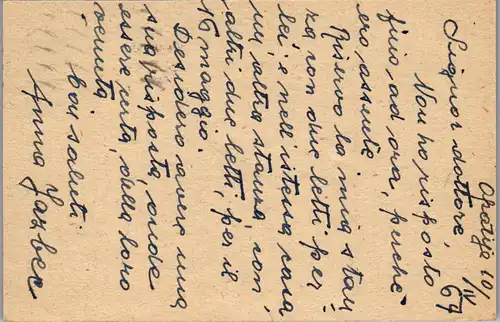 Opatija 10/
IV
67
Signor dottore,
Non ho risposto
fino ad ora, perche
ero assente
Riservo la mia stan-
za con due letti per
lei e nell'istessa casa
un, altra stanza, con
altri due letti, per il
16 maggio.
Desidero avere una
sua risposta, onde
essere certa, della loro
venuta
boi saluti
Anna Jazbec